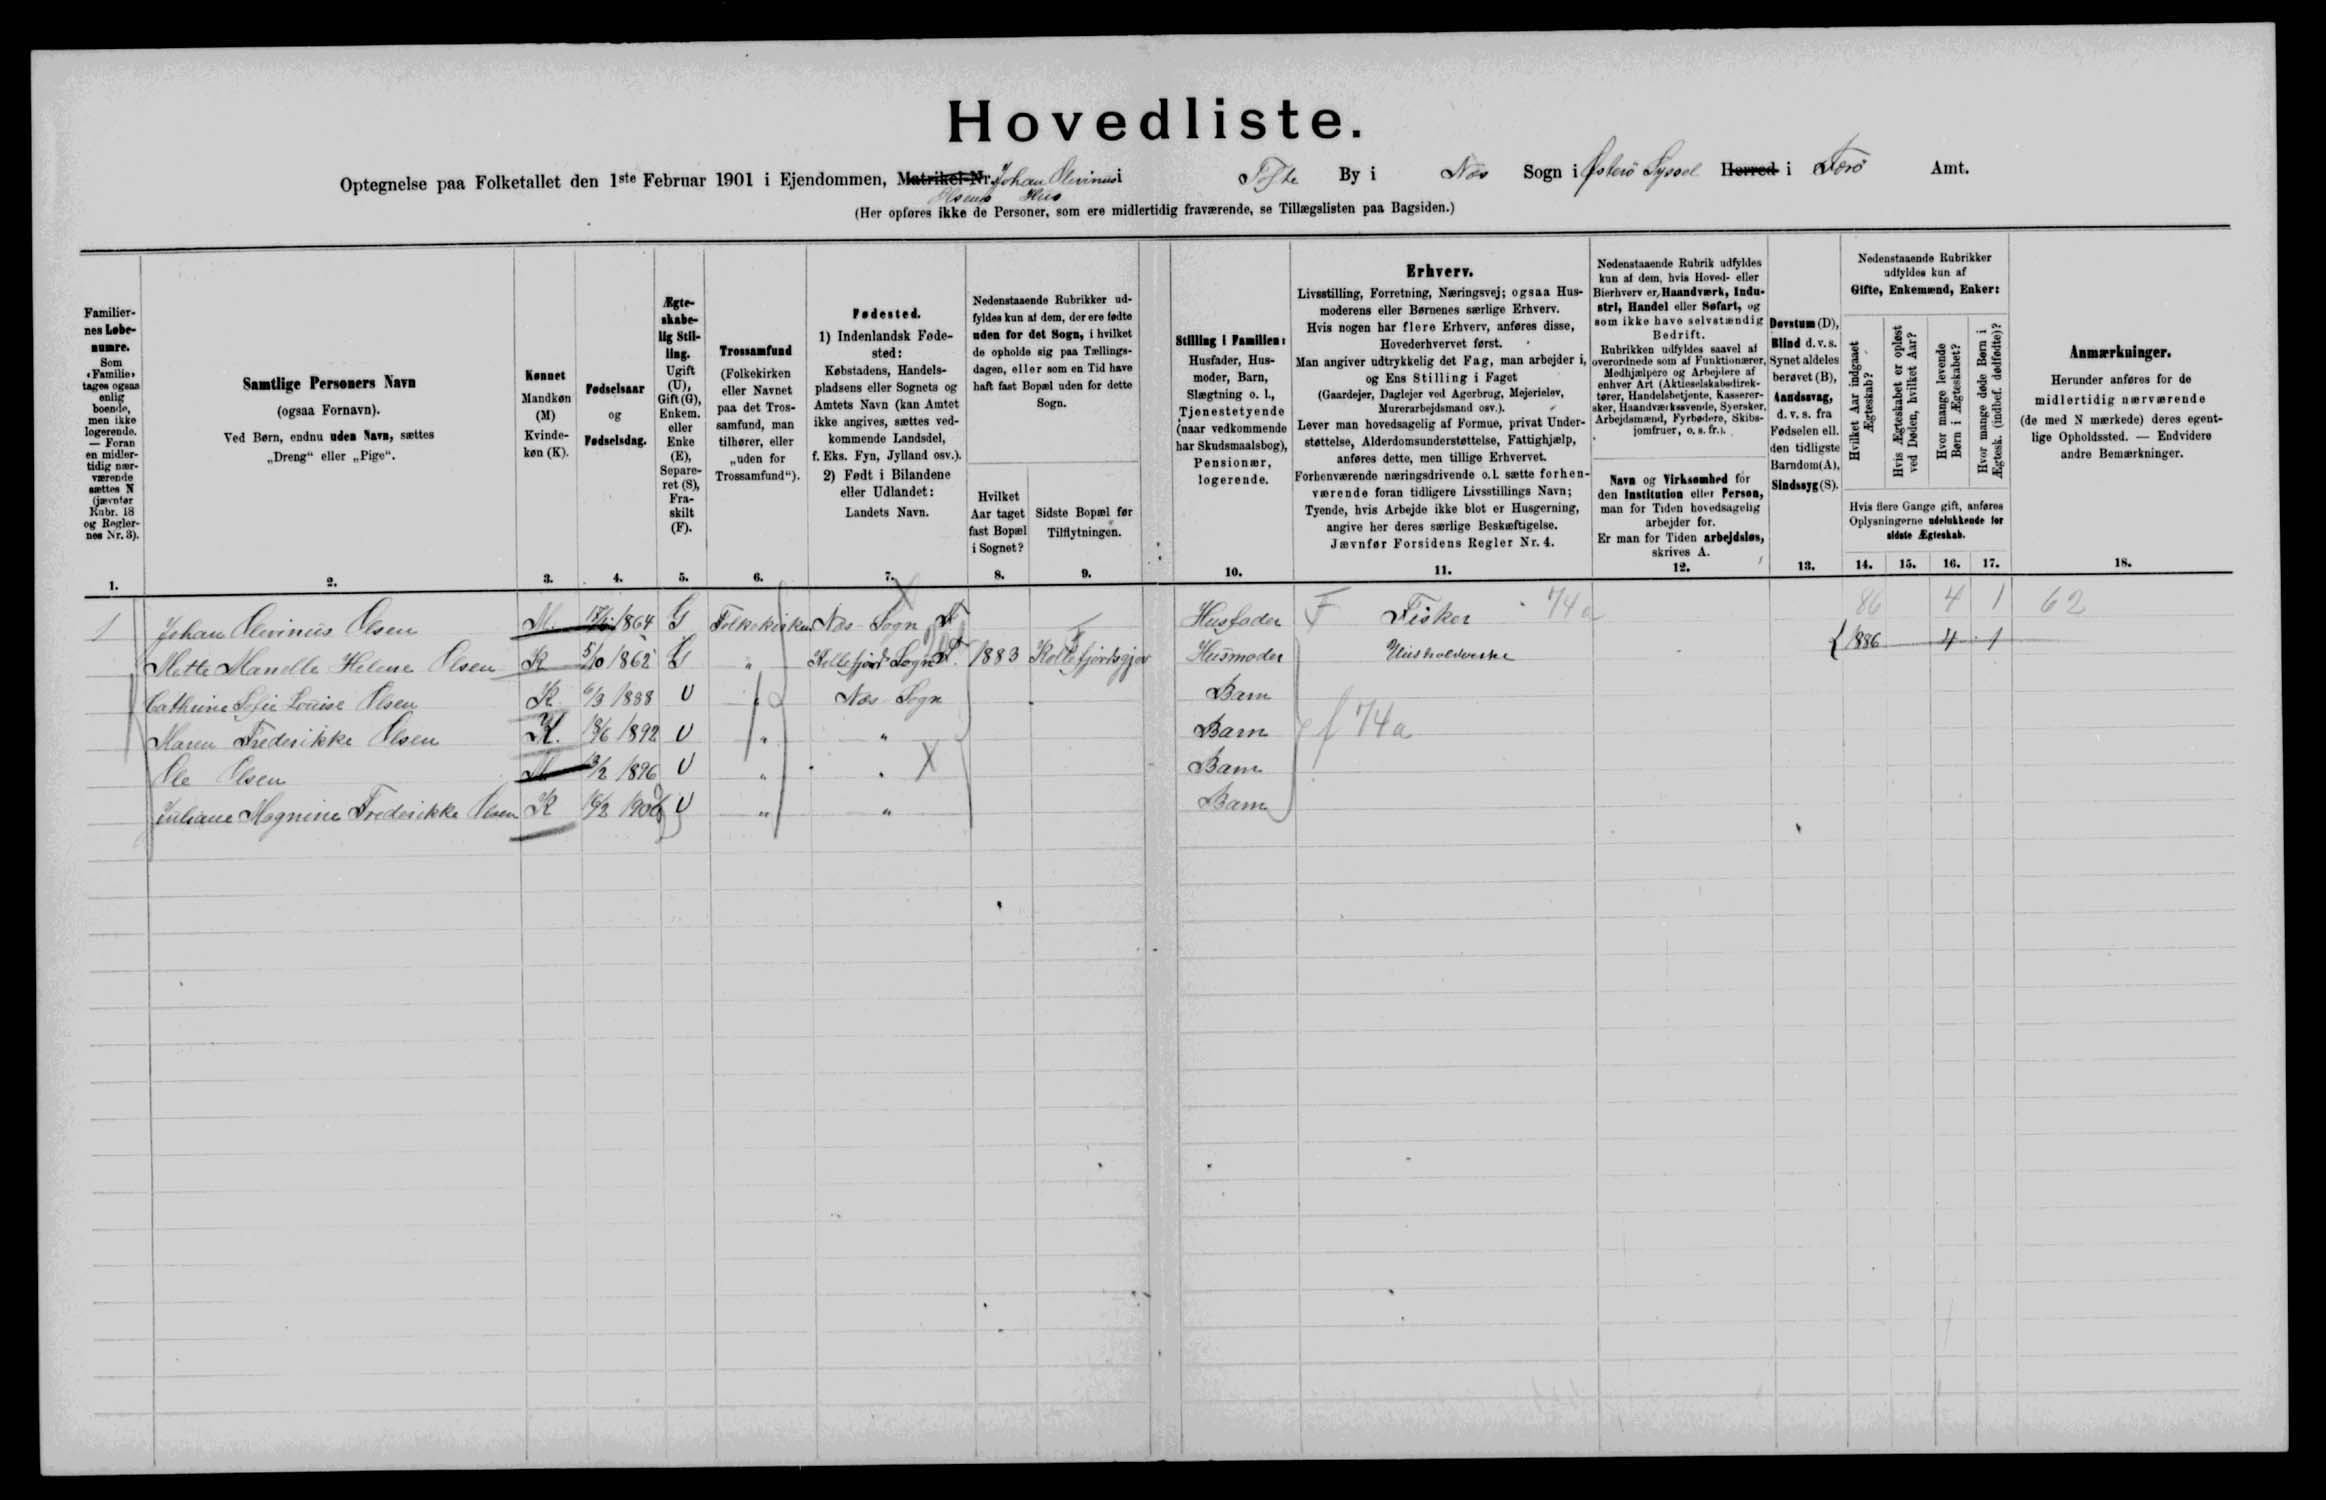 Hovedliste.
Optegnelse paa Folketallet den 1ste Februar 1901 i Ejendommen, Matrikel-Nr. Johan Olevinus i Tofte By i Næs Sogn i Østerö Syssel Herred i Færö Amt.
Olsens Hus
(Her opføres ikke de Personer, som ere midlertidig fraværende, se Tillægslisten paa Bagsiden.)
Familier-
nes Løbe-
numre.
Som
«Familie»
tages ogsaa
enlig
boende,
men ikke
logerende.
— Foran
en midler-
tidig nær-
værende
sættes N
(jævnfør
Rubr. 18
og Regler-
nes Nr. 3).
1.
Samtlige Personers Navn
(ogsaa Fornavn).
Ved Børn, endnu uden Navn, sættes
„Dreng“ eller „Pige“.
2.
Kønnet
Mandkøn
(M)
Kvinde-
køn (K).
3.
Fødselsaar
og
Fødselsdag.
4.
Ægte-
skabe-
lig Stil-
ling.
Ugift
(U),
Gift (G),
Enkem.
eller
Enke
(E),
Separe-
ret (S),
Fra-
skilt
(F).
5.
Trossamfund
(Folkekirken
eller Navnet
paa det Tros-
samfund, man
tilhører, eller
„uden for
Trossamfund“).
6.
Fødested.
1) Indenlandsk Føde-
sted:
Købstadens, Handels-
pladsens eller Sognets og
Amtets Navn (kan Amtet
ikke angives, sættes ved-
kommende Landsdel,
f. Eks. Fyn, Jylland osv.).
2) Født i Bilandene
eller Udlandet:
Landets Navn.
7.
Nedenstaaende Rubrikker ud-
fyldes kun af dem, der ere fødte
uden for det Sogn, i hvilket
de opholde sig paa Tællings-
dagen, eller som en Tid have
haft fast Bopæl uden for dette
Sogn.
Hvilket
Aar taget
fast Bopæl
i Sognet?
8.
Sidste Bopæl før
Tilflytningen.
9.
Stilling i Familien:
Husfader, Hus-
moder, Barn,
Slægtning o. l.,
Tjenestetyende
(naar vedkommende
har Skudsmaalsbog),
Pensionær,
logerende.
10.
Erhverv.
Livsstilling, Forretning, Næringsvej; ogsaa Hus-
moderens eller Børnenes særlige Erhverv.
Hvis nogen har flere Erhverv, anføres disse,
Hovederhvervet først.
Man angiver udtrykkelig det Fag, man arbejder i,
og Ens Stilling i Faget
(Gaardejer, Daglejer ved Agerbrug, Mejerielev,
Murerarbejdsmand osv.).
Lever man hovedsagelig af Formue, privat Under-
støttelse, Alderdomsunderstøttelse, Fattighjælp,
anføres dette, men tillige Erhvervet.
Forhenværende næringsdrivende o. l. sætte forhen-
værende foran tidligere Livsstillings Navn;
Tyende, hvis Arbejde ikke blot er Husgerning,
angive her deres særlige Beskæftigelse.
Jævnfør Forsidens Regler Nr. 4.
11.
Nedenstaaende Rubrik udfyldes
kun af dem, hvis Hoved- eller
Bierhverv er Haandværk, Indu-
stri, Handel eller Søfart, og
som ikke have selvstændig
Bedrift.
Rubrikken udfyldes saavel af
overordnede som af Funktionærer,
Medhjælpere og Arbejdere af
enhver Art (Aktieselskabsdirek-
tører, Handelsbetjente, Kasserer-
sker, Haandværkssvende, Syersker,
Arbejdsmænd, Fyrbødere, Skibs-
jomfruer, o. s. fr.).
Navn og Virksomhed for
den Institution eller Person,
man for Tiden hovedsagelig
arbejder for.
Er man for Tiden arbejdsløs,
skrives A.
12.
Døvstum (D),
Blind d. v. s.
Synet aldeles
berøvet (B),
Aandssvag,
d. v. s. fra
Fødselen ell.
den tidligste
Barndom (A),
Sindssyg (S).
13.
Nedenstaaende Rubrikker
udfyldes kun af
Gifte, Enkemænd, Enker:
Hvilket Aar indgaaet
Ægteskab?
Hvis Ægteskabet er opløst
ved Døden, hvilket Aar?
Hvor mange levende
Børn i Ægteskabet?
Hvor mange døde Børn i
Ægtesk. (indbef. dødfødte)?
Hvis flere Gange gift, anføres
Oplysningerne udelukkende for
sidste Ægteskab.
14. 15. 16. 17.
Anmærkninger.
Herunder anføres for de
midlertidig nærværende
(de med N mærkede) deres egent-
lige Opholdssted. — Endvidere
andre Bemærkninger.
18.
1 Johan Olevinus Olsen M. 1864 G Folkekirken Næs Sogn F Husfader F Fisker 74a 86 4 1 62
Mette Manella Helene Olsen K 5/10 1862 G „ Kollefjord Sogn F. 1883 Kollefjordsgjov Husmoder Husholderske 1886 4 1
Cathrine Sofie Louise Olsen K 6/3 1888 U „ Næs Sogn Barn
Maren Frederikke Olsen K. 18/6 1892 U „ „ Barn f 74a
Ole Olsen M 13/2 1896 U „ „ X Barn
Juliane Magnine Frederikke Olsen K 16/2 U „ „ Barn